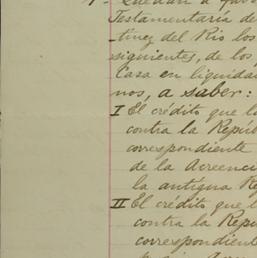 4ª Quedan á favo
Testamentaría de
tinez del Rio los
siguientes, de los
Casa en liquida
nos, a saber:
I El crédito que l
contra la Repú
correspondiente
de la Acreenci
la antigua Re
II El crédito que l
contra la Repu
correspondient